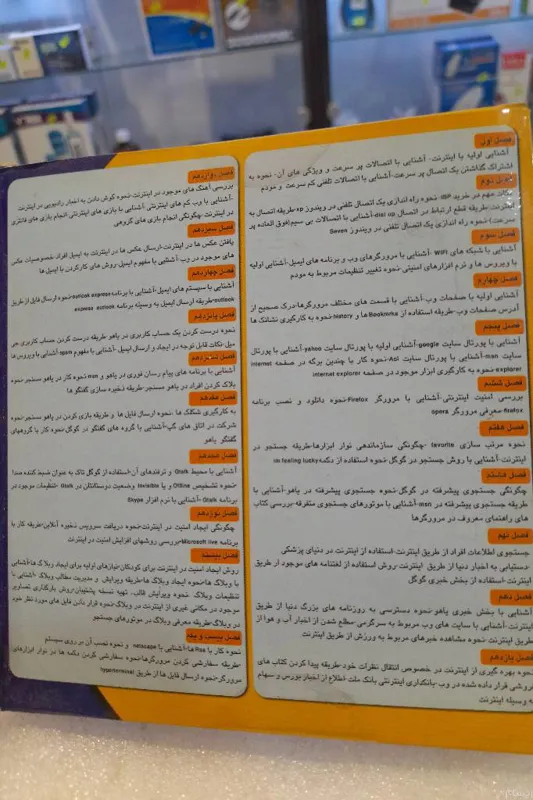 فصل اول
آشنایی اولیه با اینترنت- آشنایی با اتصالات پر سرعت و ویژگی های آن- نحوه به
اشتراک گذاشتن یک اتصال پر سرعت-آشنایی با اتصالات تلفنی کم سرعت و مودم
فصل دوم
نکات مهم در خرید isp- نحوه راه اندازی یک اتصال تلفنی در ویندوز xp-طریقه اتصال به
اینترنت-طریقه قطع ارتباط در اتصال dial up-آشنایی با اتصالات بی سیم(فوق العاده پر
سرعت)-نحوه راه اندازی یک اتصال تلفنی در ویندوز Seven
فصل سوم
آشنایی با شبکه های WiFi -آشنایی با مرورگرهای وب و برنامه های ایمیل-آشنایی اولیه
با ویروس ها و نرم افزارهای امنیتی-نحوه تغییر تنظیمات مربوط به مودم
فصل چهارم
آشنایی اولیه با صفحات وب-آشنایی با قسمت های مختلف مرورگرها-درک صحیح از
آدرس صفحات وب- طریقه استفاده از Bookmrk ها و history-نحوه به کارگیری نشانک ها
فصل پنجم
آشنایی با پورتال سایت google-آشنایی اولیه با پورتال سایت yahoo-آشنایی با پورتال
سایت msn-آشنایی با پورتال سایت Aol-نحوه کار با چندین برگه در صفحه internet
explorer-نحوه به کارگیری ابزار موجود در صفحه internet explorer
فصل ششم
بررسی امنیت اینترنتی-آشنایی با مرورگر Firefox-نحوه دانلود و نصب برنامه
firefox-معرفی مرورگر opera
فصل هفتم
نحوه مرتب سازی favorite -چگونگی سازماندهی نوار ابزارها-طریقه جستجو در
اینترنت-آشنایی با روش جستجو در گوگل-نحوه استفاده از دکمه im feeling lucky
فصل هشتم
چگونگی جستجوی پیشرفته در گوگل-نحوه جستجوی پیشرفته در یاهو-آشنایی با
طریقه جستجوی پیشرفته در msn-آشنایی با موتورهای جستجوی متفرقه-بررسی کتاب
های راهنمای معروف در مرورگرها
فصل نهم
جستجوی اطلاعات افراد از طریق اینترنت-استفاده از اینترنت در دنیای پزشکی
-دستیابی به اخبار دنیا از طریق اینترنت- روش استفاده از لغتنامه های موجود در
اینترنت -استفاده از بخش خبری گوگل
فصل دهم
آشنایی با بخش خبری یاهو-نحوه دسترسی به روزنامه های بزرگ دنیا از طریق
اینترنت-آشنایی با سایت های وب مربوط به سرگرمی-مطلع شدن از اخبار آب و هوا از
طریق اینترنت- نحوه مشاهده خبرهای مربوط به ورزش از طریق اینترنت
فصل یازدهم
نحوه بهره گیری از اینترنت در خصوص انتقال نظرات خود-طریقه پیدا کردن کتاب های
فروشی قرار داده شده در وب-بانکداری اینترنتی بانک ملت-اطلاع از اخبار بورس و سهام
به وسیله اینترنت
فصل دوازدهم
بررسی آهنگ های موجود در اینترنت-نحوه گوش دادن به اخبار رادیویی در اینترنت
-آشنایی با وب کم های اینترنتی-آشنایی با بازی های اینترنتی-انجام بازی های فانتزی
در اینترنت-چگونگی انجام بازی های گروهی
فصل سیزدهم
یافتن عکس ها در اینترنت-ارسال عکس ها در اینترنت به ایمیل افراد-خصوصیات عکس
های موجود در وب-آشنایی با مفهوم ایمیل-روش های کارکردن با ایمیل ها
فصل چهاردهم
آشنایی با سیستم های ایمیل-آشنایی با برنامه outlook express-نحوه ارسال فایل از طریق
outlook-طریقه ارسال ایمیل به وسیله برنامه express outlook
فصل پانزدهم
نحوه درست کردن یک حساب کاربری در یاهو-طریقه درست کردن حساب کاربری جی
میل-نکات قابل توجه در ایجاد و ارسال ایمیل- آشنایی با مفهوم spam-آشنایی با ویروس ها
فصل شانزدهم
آشنایی با برنامه های پیام رسان فوری در یاهو و msn-نحوه کار با یاهو مسنجر-نحوه
بلاک کردن افراد در یاهو مسنجر-طریقه ذخیره سازی گفتگو ها
فصل هفدهم
به کارگیری شکلک ها -نحوه ارسال فایل ها و طریقه بازی کردن در یاهو مسنجر-نحوه
شرکت در اتاق های گپ-آشنایی با گروه های گفتگو در گوگل-نحوه کار با گروههای
گفتگو یاهو
فصل هجدهم
آشنایی با محیط Gtalk و ترفندهای آن-استفاده از گوگل تاک به عنوان ضبط کننده صدا
-نحوه تشخیص Offline و یا Invisible وضعیت دوستانتان در Gtalk -تنظیمات موجود در
برنامه Gtalk -آشنایی با نرم افزار Skype
فصل نوزدهم
چگونگی ایجاد امنیت در اینترنت-نحوه دریافت سرویس ذخیره آنلاین-طریقه کار با
برنامه Microsoft live-بررسی روشهای افزایش امنیت در اینترنت
فصل بیستم
روش ایجاد امنیت در اینترنت برای کودکان-نیازهای اولیه برای ایجاد وبلاگ ها-آشنایی
با وبلاگ ها-نحوه ایجاد وبلاگ ها-طریقه ویرایش و مدیریت مطالب وبلاگ -آشنایی با
تنظیمات وبلاگ -نحوه ویرایش قالب- تهیه نسخه پشتیبان-روش بارگذاری تصاویر
موجود در مکانی غیری از اینترنت در وبلاگ-نحوه قرار دادن فایل های مورد نظر خود
در وبلاگ-طریقه معرفی وبلاگ در موتورهای جستجو
فصل بیست و یک
نحوه کار با Rss ها-آشنایی با netscape و نحوه نصب آن بر روی سیستم
-طریقه سفارشی کردن مرورگرها-نحوه سفارشی کردن دکمه ها در نوار ابزارهای
مرورگر-نحوه ارسال فایل ها از طریق hyperterminal